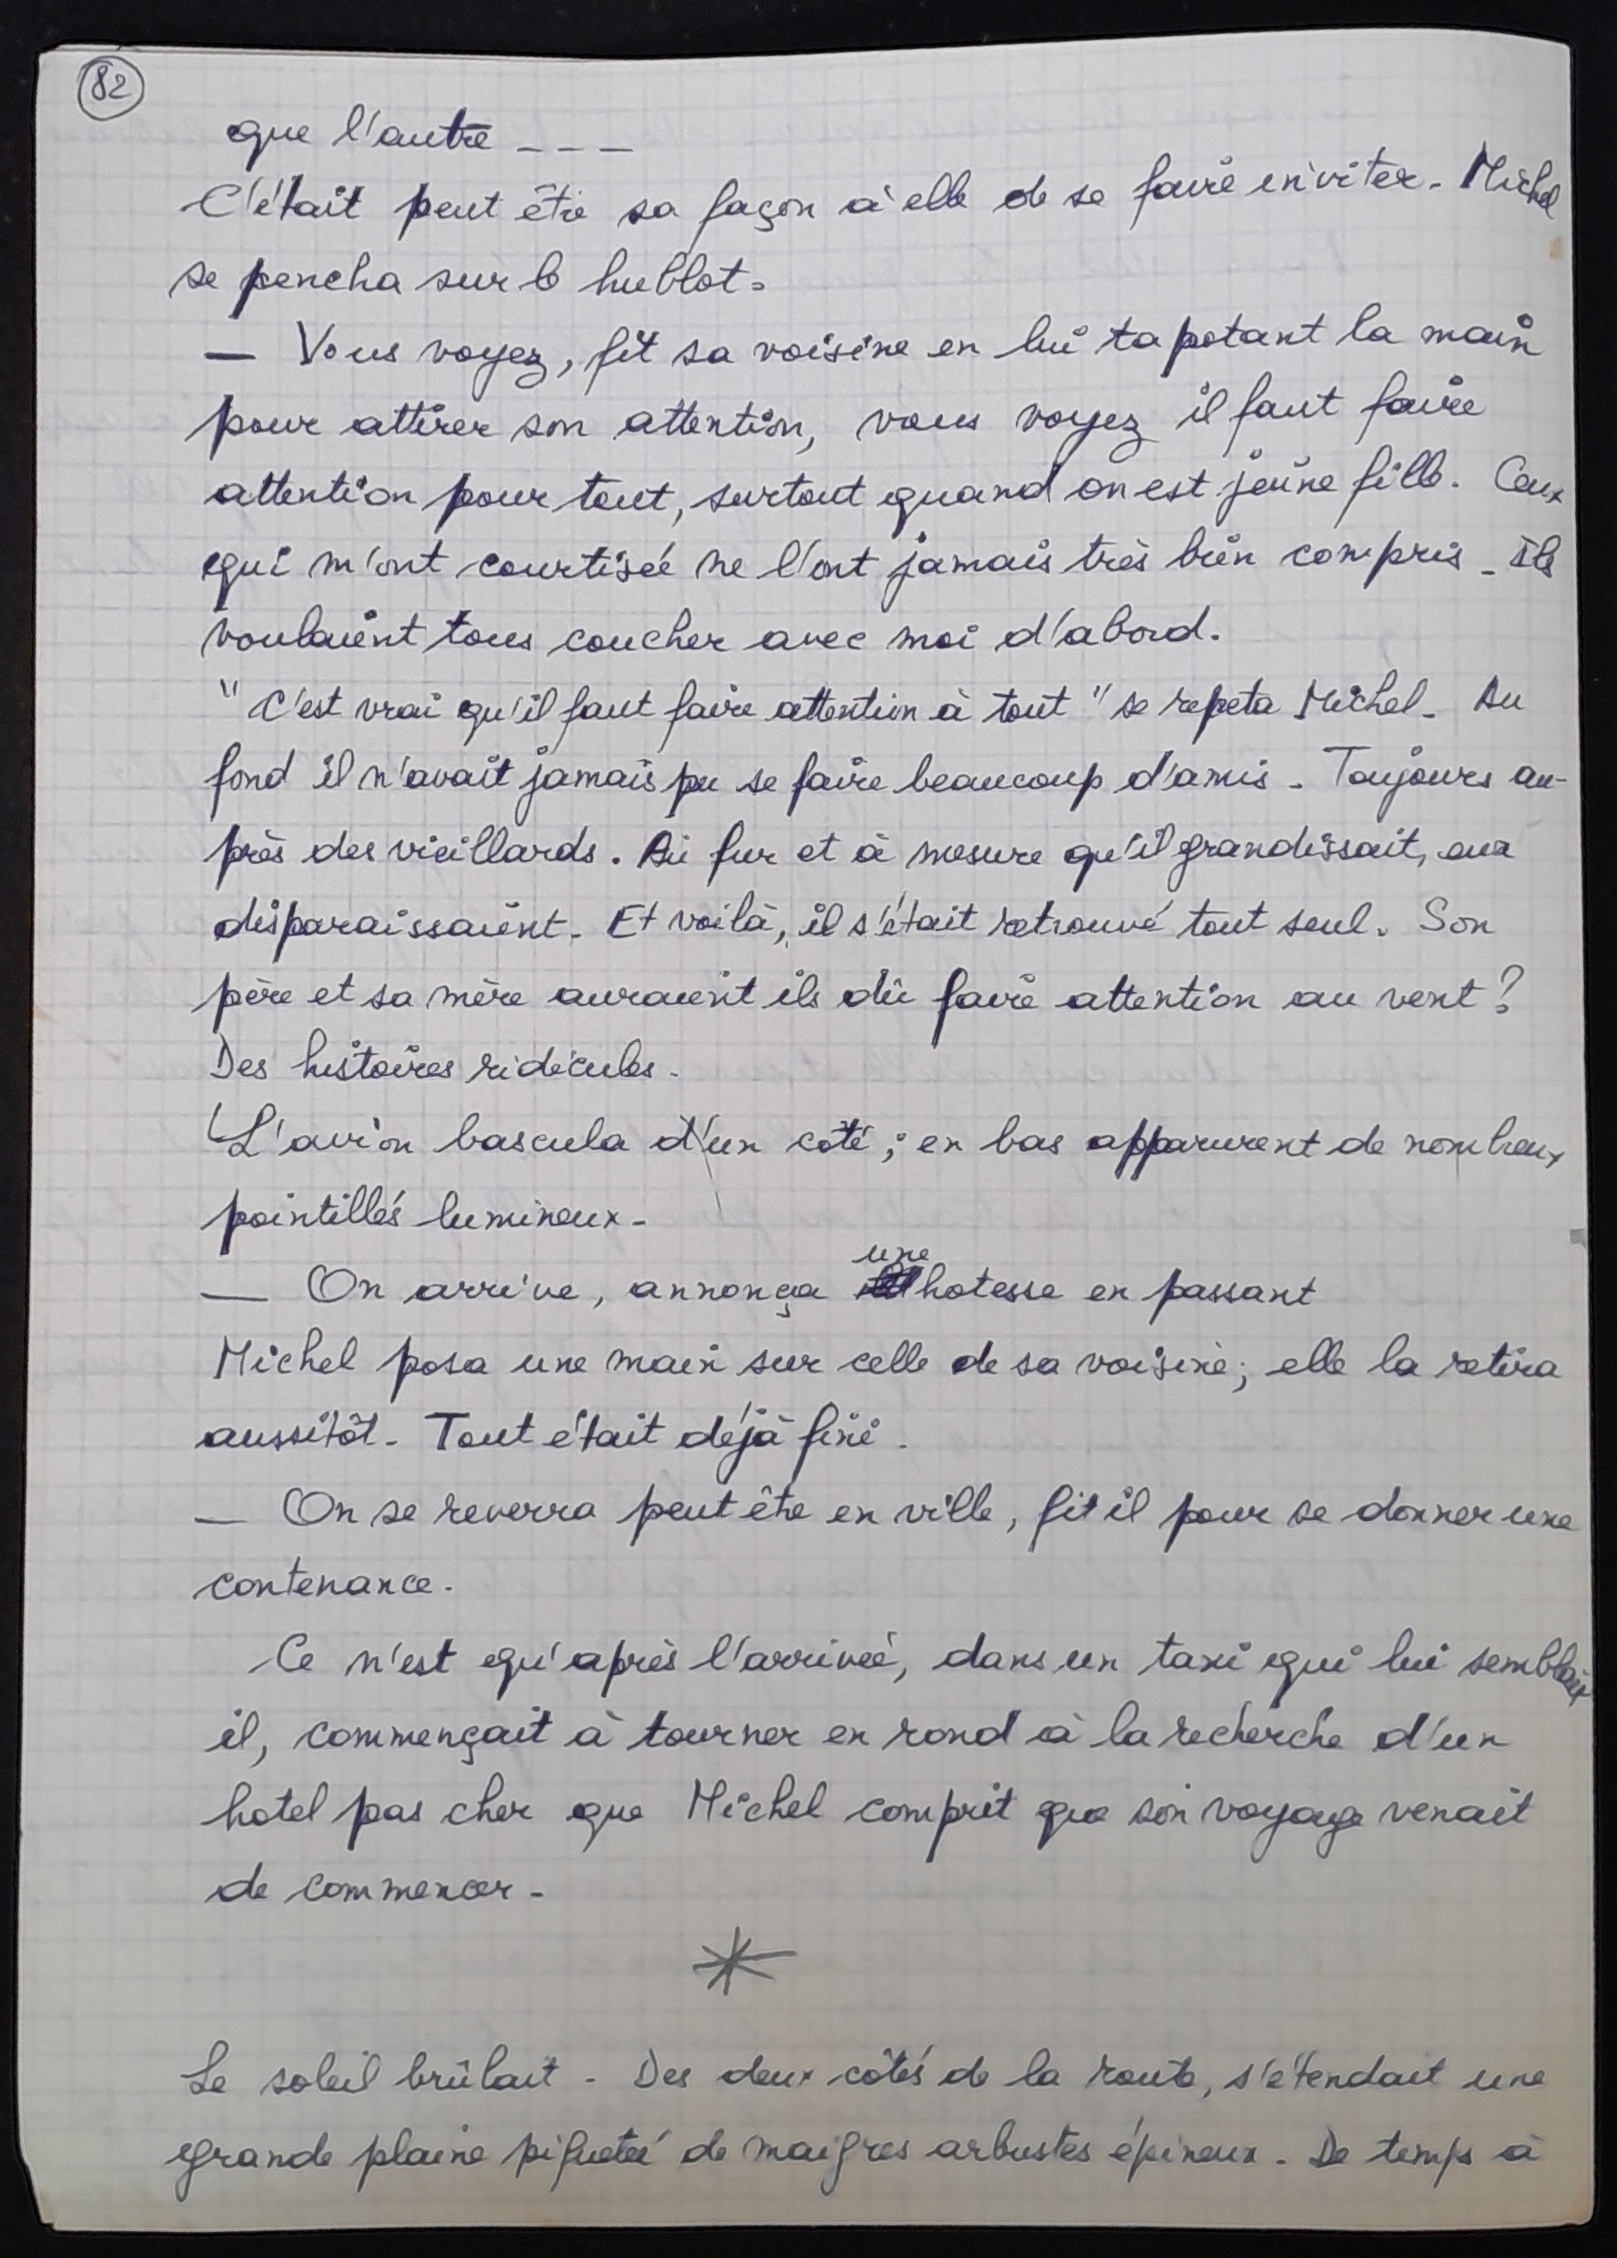 82
que l'autre _ _ _
C'était peut être sa façon à elle de se faire inviter. Michel
se pencha sur le hublot.
— Vous voyez, fit sa voisine en lui tapotant la main
pour attirer son attention, vous voyez il faut faire
attention pour tout, surtout quand on est jeune fille. Ceux
qui m'ont courtisée ne l'ont jamais très bien compris. Ils
voulaient tous coucher avec moi d'abord.
"C'est vrai qu'il faut faire attention à tout" se repeta Michel. Au
fond il n'avait jamais pu se faire beaucoup d'amis. Toujours au-
près des vieillards. Au fur et à mesure qu'il grandissait, eux
disparaissaient. Et voilà, il s'était retrouvé tout seul. Son
père et sa mère auraient ils dû faire attention au vent ?
Des histoires ridicules.
L'avion bascula d'un côté ; en bas apparurent de nombreux
pointillés lumineux.
— On arrive, annonça une hotesse en passant
Michel posa une main sur celle de sa voisine ; elle la retira
aussitôt. Tout était déjà fini.
— On se reverra peut être en ville, fit il pour se donner une
contenance.
Ce n'est qu'après l'arrivée, dans un taxi qui lui semblait
il, commençait à tourner en rond à la recherche d'un
hotel pas cher que Michel comprit que son voyage venait
de commencer.
*
Le soleil brûlait. Des deux côtés de la route, s'étendait une
grande plaine piquetée de maigres arbustes épineux. De temps à